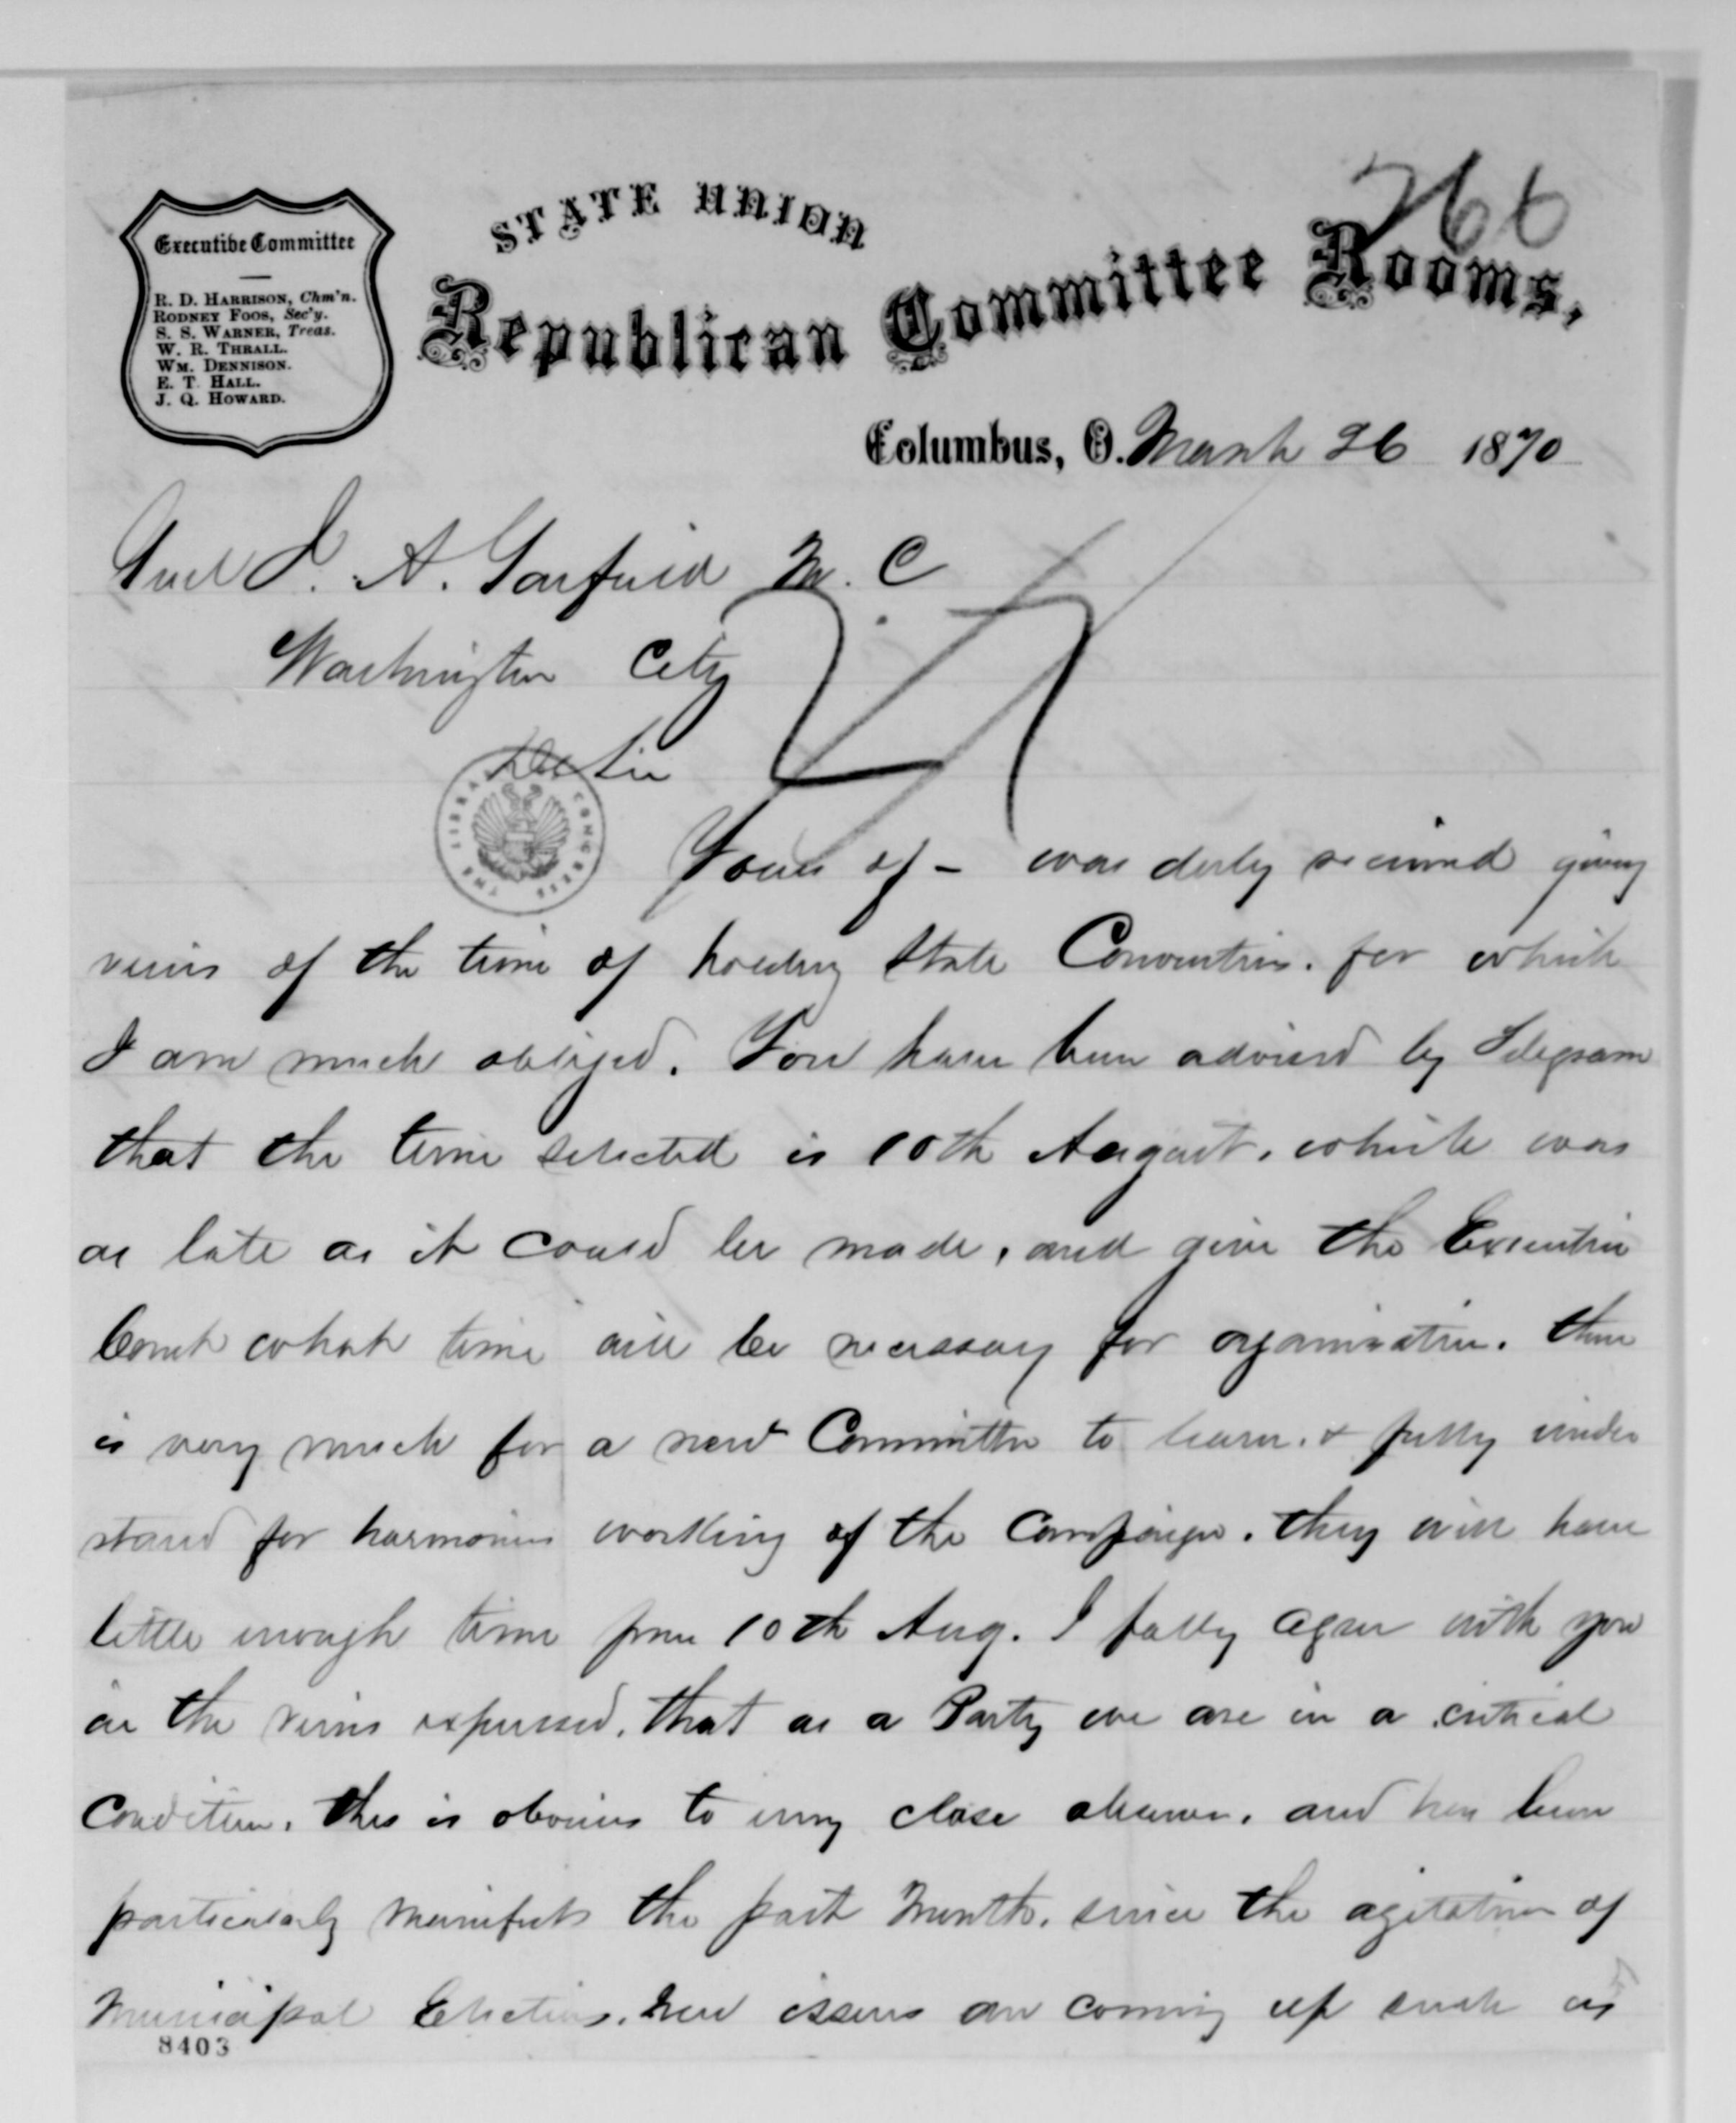 266
STATE UNION
Republican Committee Rooms,
Executive Committee
R. D. HARRISON, Chm'n.
RODNEY FOOS, Sec'y.
S. S. WARNER, Treas.
W. R. THRALL.
WM. DENNISON.
E. T. HALL.
J. Q. HOWARD.
Columbus, O. March 26 1870
Genl J. A. Garfield M. C
Washington City
Dr Sir
THE LIBRARY CONGRESS
Yours of - was duly received giving
views of the time of holding State Convention. for which
I am much obliged. You have been advised by Telegram
that the time selected is 10th August. which was
as late as it could be made, and give the Executive
Comt what time will be necessary for organization. there
is very much for a new Committee to learn. & fully under
stand for harmonious working of the Campaign. they will have
little enough time from 10th Aug. I fully agree with you
in the views expressed. that as a Party we are in a critical
Condition. this is obvious to every close observer. and has been
particularly manifest the past Month. since the agitation of
Municipal Elections. New issues are coming up such as
8403